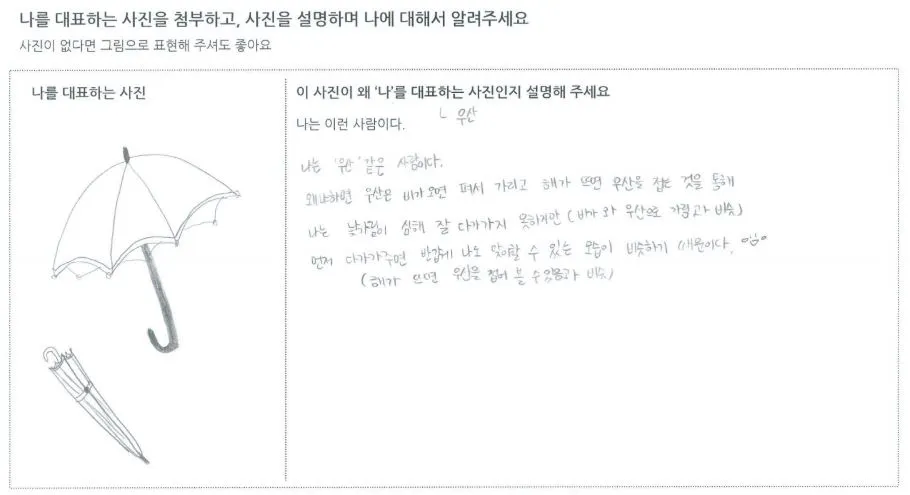 나를 대표하는 사진을 첨부하고, 사진을 설명하며 나에 대해서 알려주세요
사진이 없다면 그림으로 표현해 주셔도 좋아요
나를 대표하는 사진
이 사진이 왜 ‘나’를 대표하는 사진인지 설명해 주세요
나는 이런 사람이다.
ㄴ 우산
나는 '우산' 같은 사람이다.
왜냐하면 우산은 비가 오면 펴서 가리고 해가 뜨면 우산을 접는 것을 통해
나는 낯가림이 심해 잘 다가가지 못하지만 (비가 와 우산으로 가림과 비슷)
먼저 다가가주면 반갑게 나도 맞이할 수 있는 모습이 비슷하기 때문이다.
(해가 뜨면 우산을 접어 볼 수 있음과 비슷)